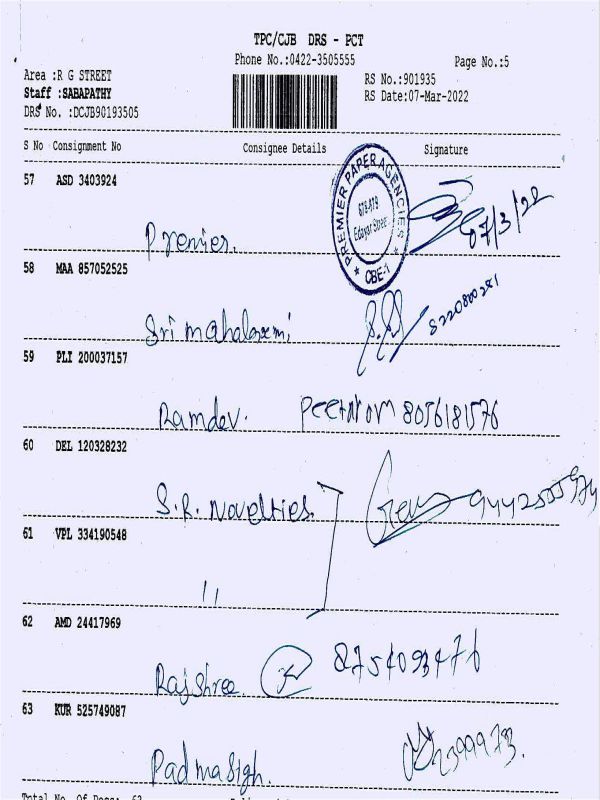 TPC/CJB DRS - PCT
Phone No.:0422-3505555
Page No.:5
Area :R G STREET
RS No.:901935
Staff :SABAPATHY
RS Date:07-Mar-2022
DRS No. :DCJB90193505
S No Consignment No Consignee Details Signature
57 ASD 3403924
PREMIER PAPER AGENCIES
Edayar Street
CBE-1
07/3/22
Premier.
58 MAA 857052525
Sri mahalaxmi
59 PLI 200037157
Ramdev. 8056181576
60 DEL 120328232
S.R. Novelties
61 VPL 334190548
"
62 AMD 24417969
Rajshree 8754093476
63 KUR 525749087
Padmasigh.